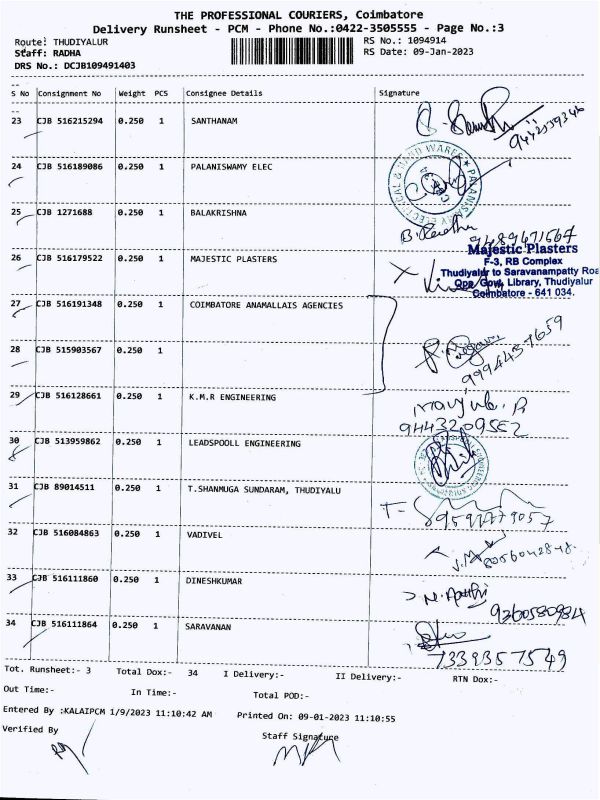 THE PROFESSIONAL COURIERS, Coimbatore
Delivery Runsheet - PCM - Phone No.:0422-3505555 - Page No.:3
Route: THUDIYALUR
Staff: RADHA
DRS No.: DCJB109491403
RS No.: 1094914
RS Date: 09-Jan-2023
S No Consignment No Weight PCS Consignee Details Signature
23 CJB 516215294 0.250 1 SANTHANAM
24 CJB 516189086 0.250 1 PALANISWAMY ELEC
25 CJB 1271688 0.250 1 BALAKRISHNA
26 CJB 516179522 0.250 1 MAJESTIC PLASTERS
Majestic Plasters
F-3, RB Complex
Thudiyalur to Saravanampatty Roa
Opp. Govt. Library, Thudiyalur
Coimbatore - 641 034.
27 CJB 516191348 0.250 1 COIMBATORE ANAMALLAIS AGENCIES
28 CJB 515903567 0.250 1
9994437659
29 CJB 516128661 0.250 1 K.M.R ENGINEERING
30 CJB 513959862 0.250 1 LEADSPOOLL ENGINEERING
31 CJB 89014511 0.250 1 T.SHANMUGA SUNDARAM, THUDIYALU
32 CJB 516084863 0.250 1 VADIVEL
33 CJB 516111860 0.250 1 DINESHKUMAR
9360580984
34 CJB 516111864 0.250 1 SARAVANAN
7339357549
Tot. Runsheet:- 3 Total Dox:- 34 I Delivery:- II Delivery:- RTN Dox:-
Out Time:- In Time:- Total POD:-
Entered By :KALAIPCM 1/9/2023 11:10:42 AM Printed On: 09-01-2023 11:10:55
Verified By
Staff Signature